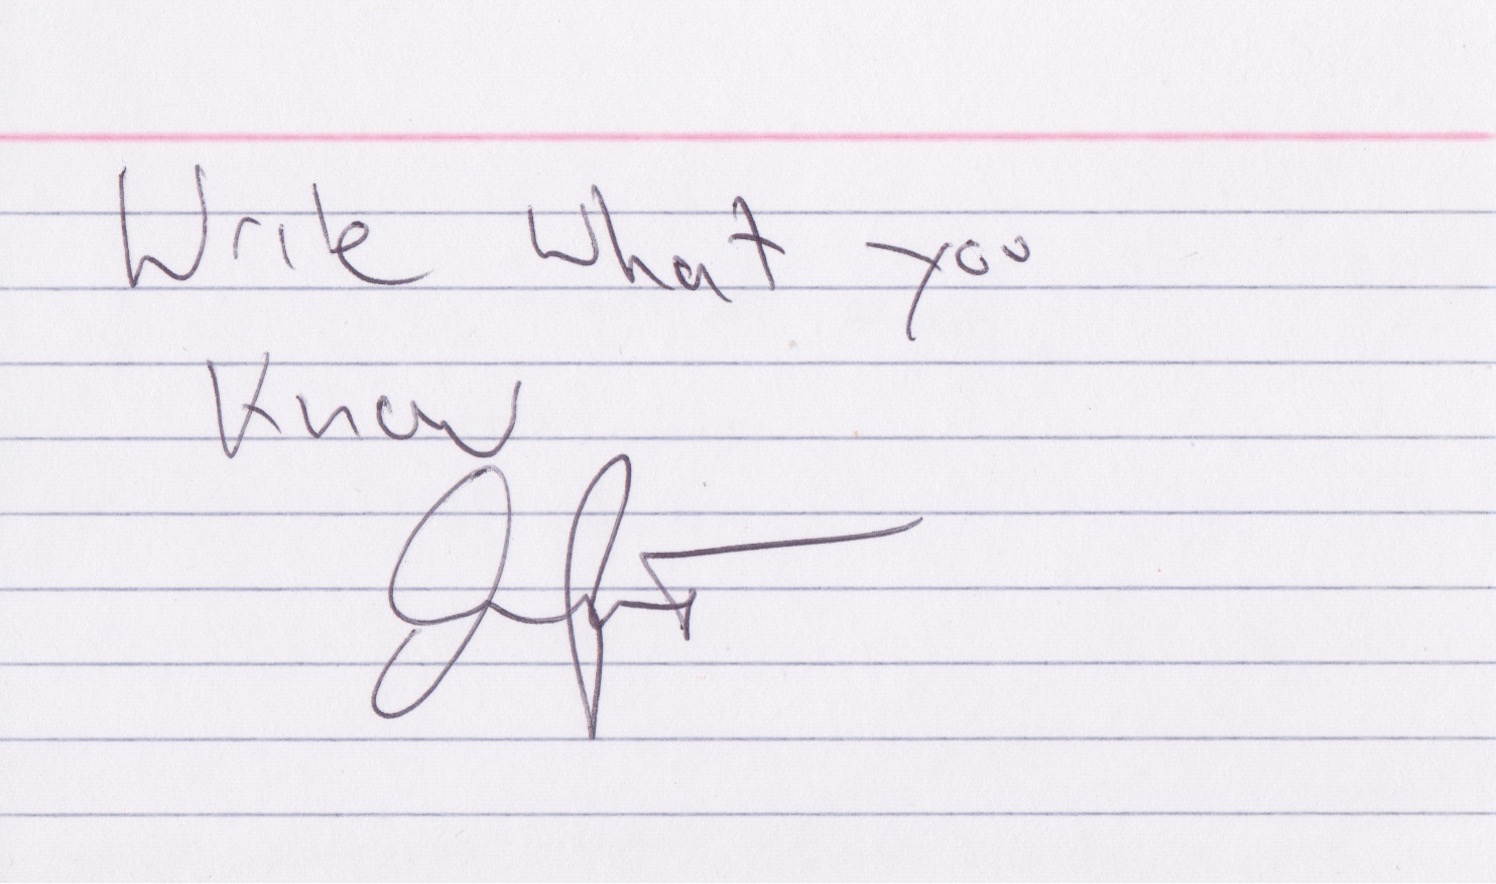 Write what you
Know